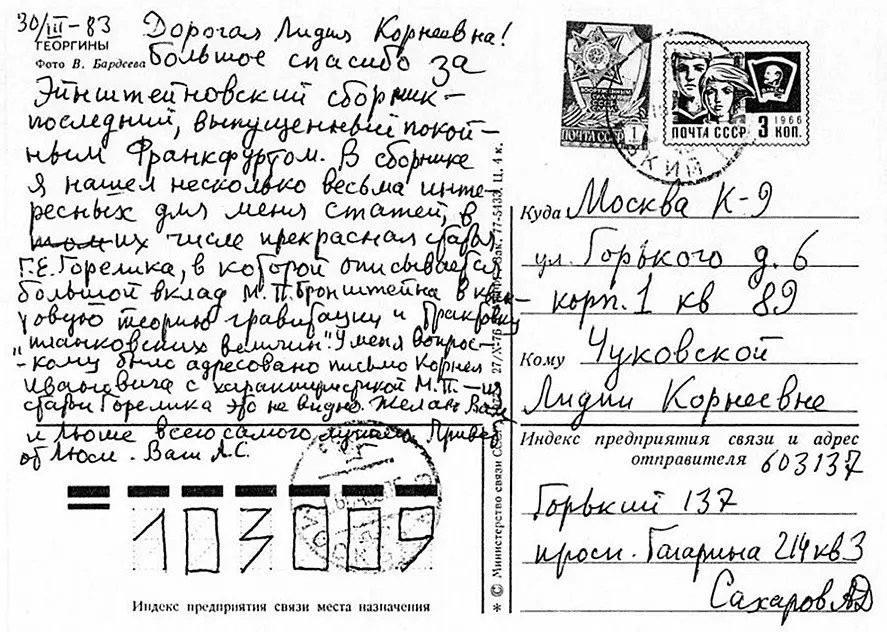 30/III-83 Дорогая Лидия Корнеевна!
ГЕОРГИНЫ
Фото В. Бардеева Большое спасибо за
Эйнштейновский сборник -
последний, выпущенный покой-
ным Франкфуртом. В сборнике
я нашел несколько весьма инте-
ресных для меня статей, в
том их числе прекрасная статья
Г.Е. Горелика, в которой описывается
большой вклад М.П. Бронштейна в кван-
товую теорию гравитации и трактовку
"планковских величин". У меня вопрос-
- кому было адресовано письмо Корнея
Ивановича с характеристикой М.П. - из
статьи Горелика это не видно. Желаю Вам
и Люше всего самого лучшего. Привет
от Люси. Ваш А.С.
103009
Индекс предприятия связи места назначения
* © Министерство связи СССР 27/X-76 Зак. 77-5133. Ц. 4 к.
ПОЧТА СССР 1
ПОЧТА СССР 3 1966 КОП.
Куда Москва К-9
ул. Горького д. 6
корп. 1 кв 89
Кому Чуковской
Лидии Корнеевне
Индекс предприятия связи и адрес
отправителя 603137
Горький 137
просп. Гагарина 214 кв 3
Сахаров АД